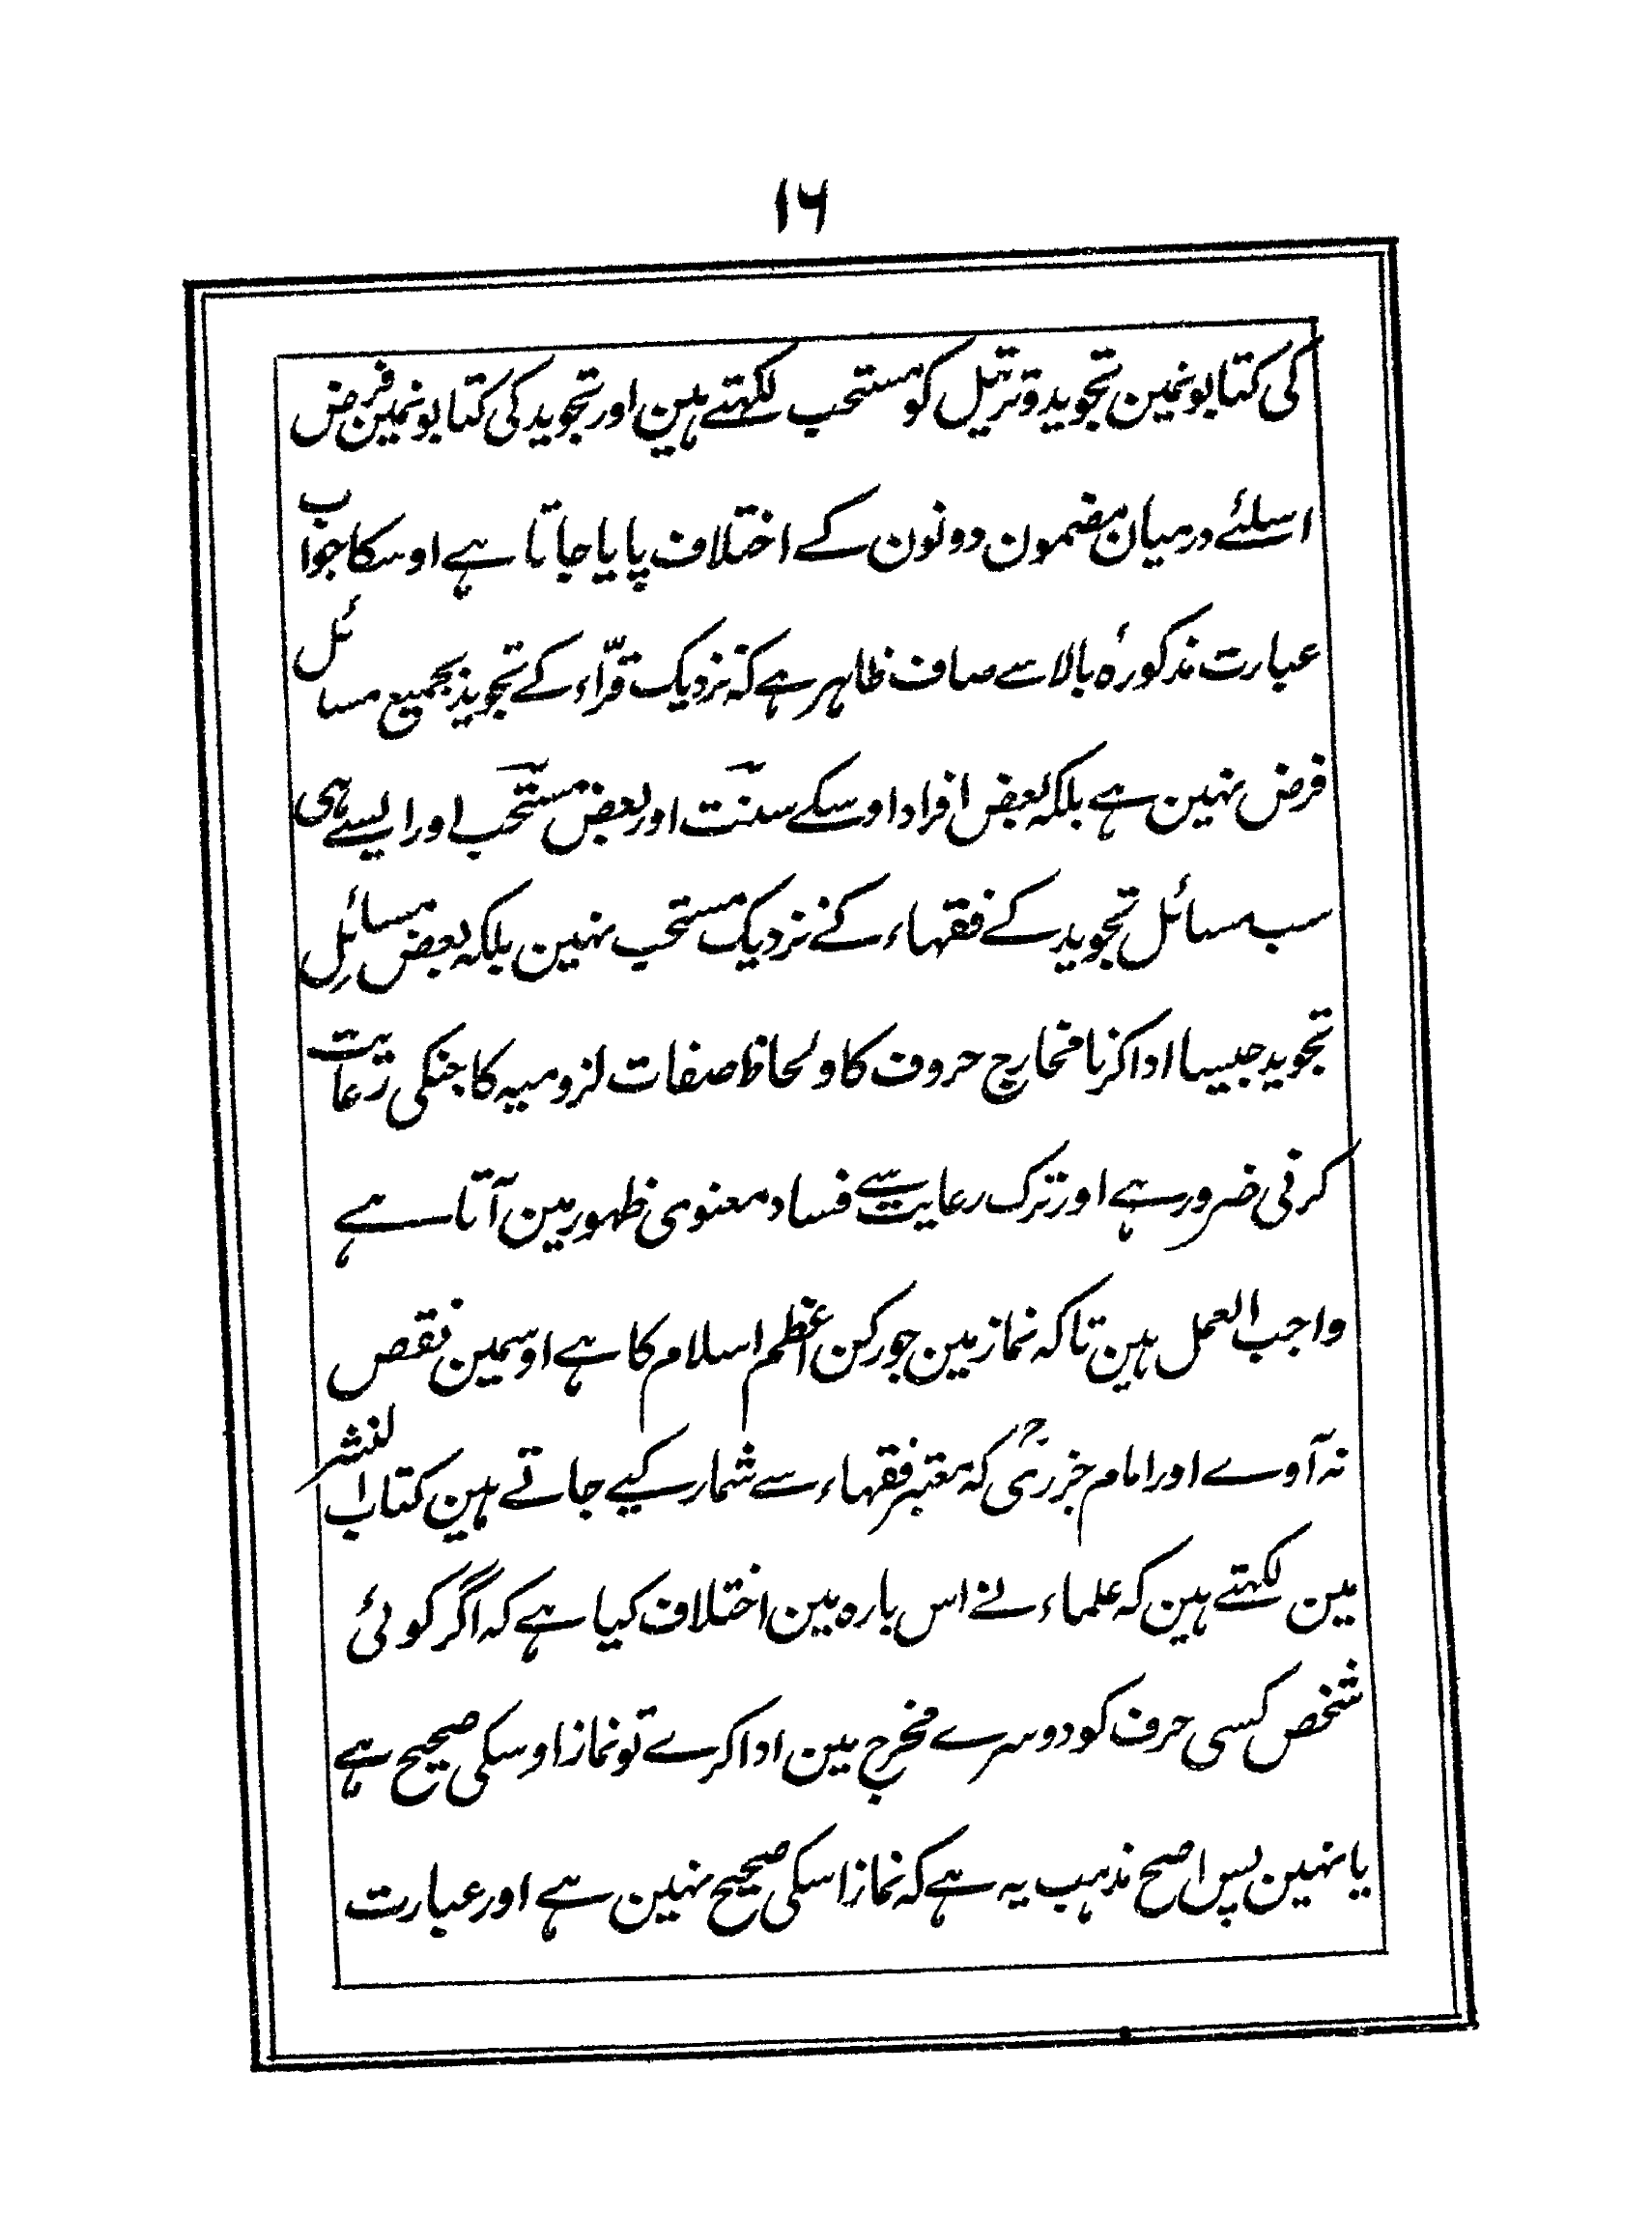 ۱۶
کی کتابونمین تجوید و ترتیل کو مستحب لکھتے ہین اور تجوید کی کتابونمین فرض
اسلئے درمیان مضمون دونون کے اختلاف پایا جاتا ہے اوسکا جواب
عبارت مذکورہٴ بالا سے صاف ظاہر ہے کہ نزدیک قرّاء کے تجوید بجمیع مسائل
فرض نہین ہے بلکہ بعض افراد اوسکے سنت اور بعض مستحب اور ایسے ہی
سب مسائل تجوید کے فقہاء کے نزدیک مستحب نہین بلکہ بعض مسائلِ
تجوید جیسا ادا کرنا مخارج حروف کا و لحاظ صفات لزومیہ کا جنکی رعایت
کرنی ضرور ہے اور ترک رعایت سے فساد معنوی ظہور مین آتا ہے
واجب العمل ہین تاکہ نماز مین جو رکن اعظم اسلام کا ہے اوسمین نقص
نہ آوے اور امام جزریؒ کہ معتبر فقہاء سے شمار کیے جاتے ہین کتاب النشر
مین لکھتے ہین کہ علماء نے اس بارہ مین اختلاف کیا ہے کہ اگر کوئی
شخص کسی حرف کو دوسرے مخرج مین ادا کرے تو نماز اوسکی صحیح ہے
یا نہین پس اصح مذہب یہ ہے کہ نماز اسکی صحیح نہین ہے اور عبارت